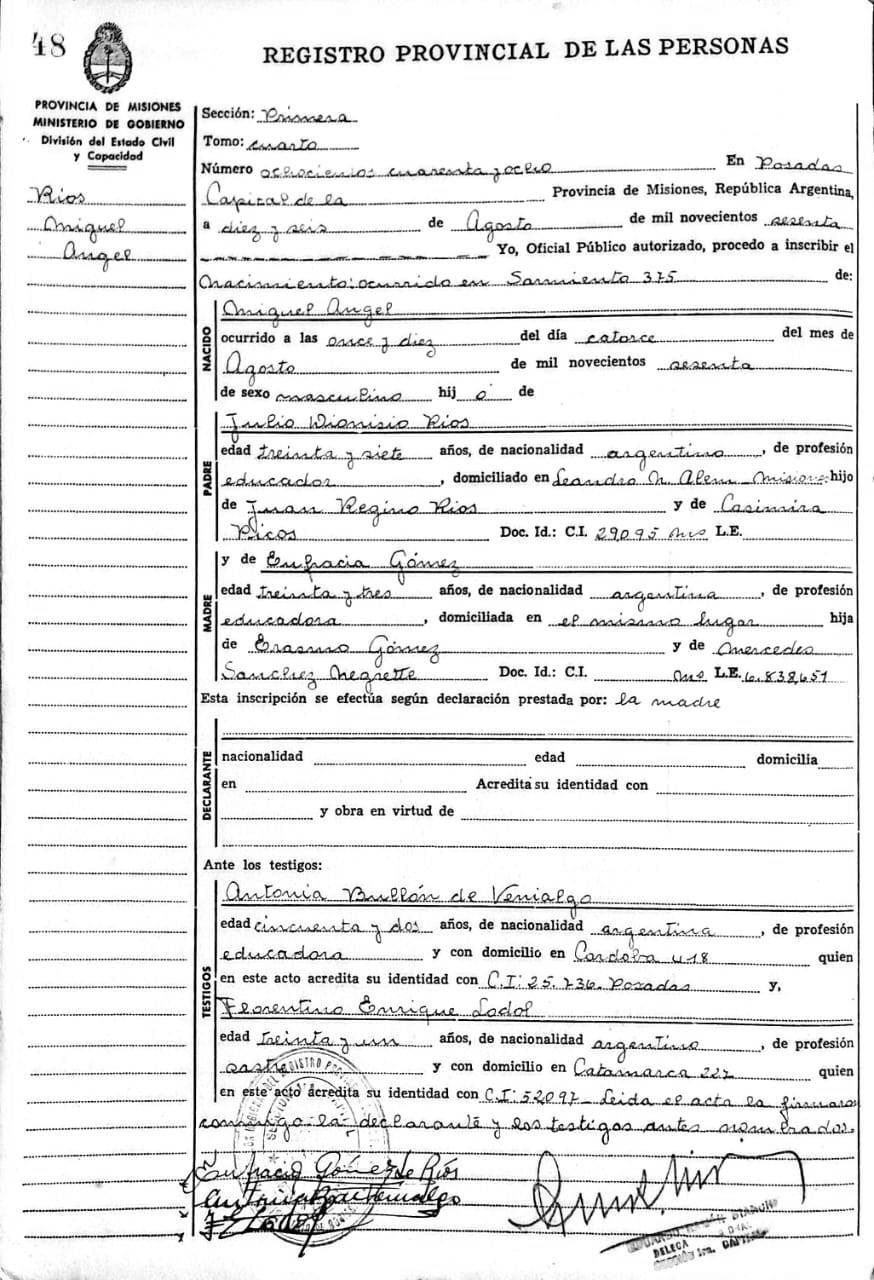 48
REGISTRO PROVINCIAL DE LAS PERSONAS
PROVINCIA DE MISIONES
MINISTERIO DE GOBIERNO
División del Estado Civil
y Capacidad
Rios
Miguel
Angel
Sección: Primera
Tomo: cuarto
Número ochocientos cuarenta y ocho En Posadas
Capital de la Provincia de Misiones, República Argentina,
a diez y seis de Agosto de mil novecientos sesenta
Yo, Oficial Público autorizado, procedo a inscribir el
nacimiento: ocurrido en Sarmiento 375 de:
NACIDO
Miguel Angel
ocurrido a las once y diez del día catorce del mes de
Agosto de mil novecientos sesenta
de sexo masculino hij o de
PADRE
Julio Dionisio Rios
edad treinta y siete años, de nacionalidad argentino, de profesión
educador, domiciliado en Leandro N. Alem Misiones hijo
de Juan Regino Rios y de Casimira
Ricos Doc. Id.: C.I. 29095 Mns L.E.
MADRE
y de Eufracia Gómez
edad treinta y tres años, de nacionalidad argentina, de profesión
educadora, domiciliada en el mismo lugar hija
de Erasmo Gómez y de Mercedes
Sanchez Negrette Doc. Id.: C.I. Mns L.E. 6.838.651
Esta inscripción se efectúa según declaración prestada por: la madre
DECLARANTE
nacionalidad edad domicilia
en Acredita su identidad con
y obra en virtud de
Ante los testigos:
TESTIGOS
Antonia Bullón de Venialgo
edad cincuenta y dos años, de nacionalidad argentina, de profesión
educadora y con domicilio en Cordoba 418 quien
en este acto acredita su identidad con C.I: 25.736. Posadas y,
Florentino Enrique Lodol
edad treinta y un años, de nacionalidad argentino, de profesión
sastre y con domicilio en Catamarca 227 quien
en este acto acredita su identidad con C.I: 52097 - Leida el acta la firman
conmigo la declarante y los testigos antes nombrados.
Eufracia Gómez de Ríos
Antonia B. de Venialgo
DELEGA